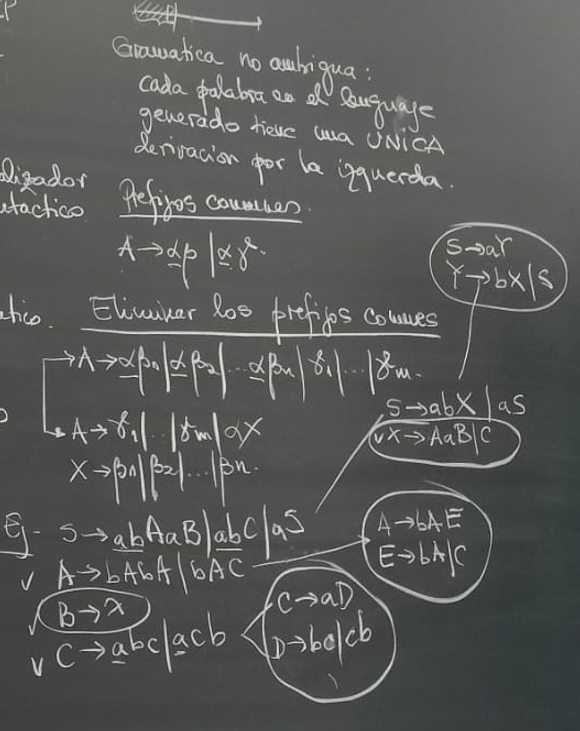 Gramatica no ambigua:
cada palabra en el lenguaje
generado tiene una UNICA
derivacion por la izquerda.
lizador
tactico
Prefijos comunes.
A→αβ|αγ
tico.
Eliminar los prefijos comunes
A→αβ1|αβ2|...αβn|γ1|...|γm.
A→γ1|...|γm|αX
X→β1|β2|...|βn.
S→aY
Y→bX|S
S→abX|aS
X→AaB|C
Ej- S→abAaB|abC|aS
A→bAbA|bAC
B→λ
C→abc|acb
A→bAE
E→bA|C
C→aD
D→bc|cb